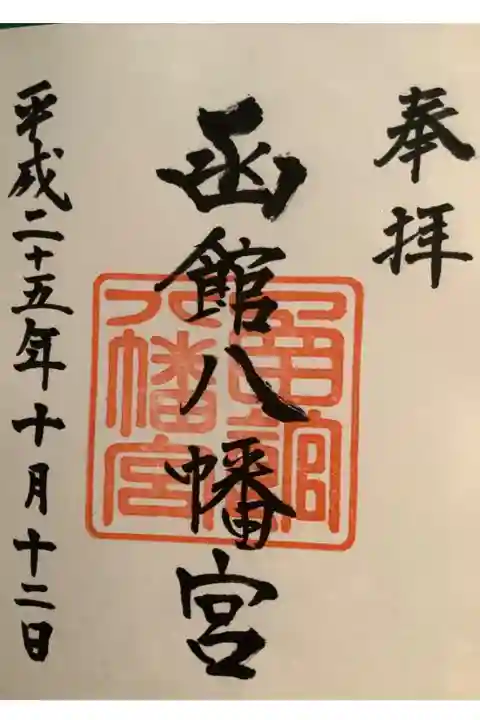 奉拝
函館八幡宮
函館八幡宮
平成二十五年十月十二日